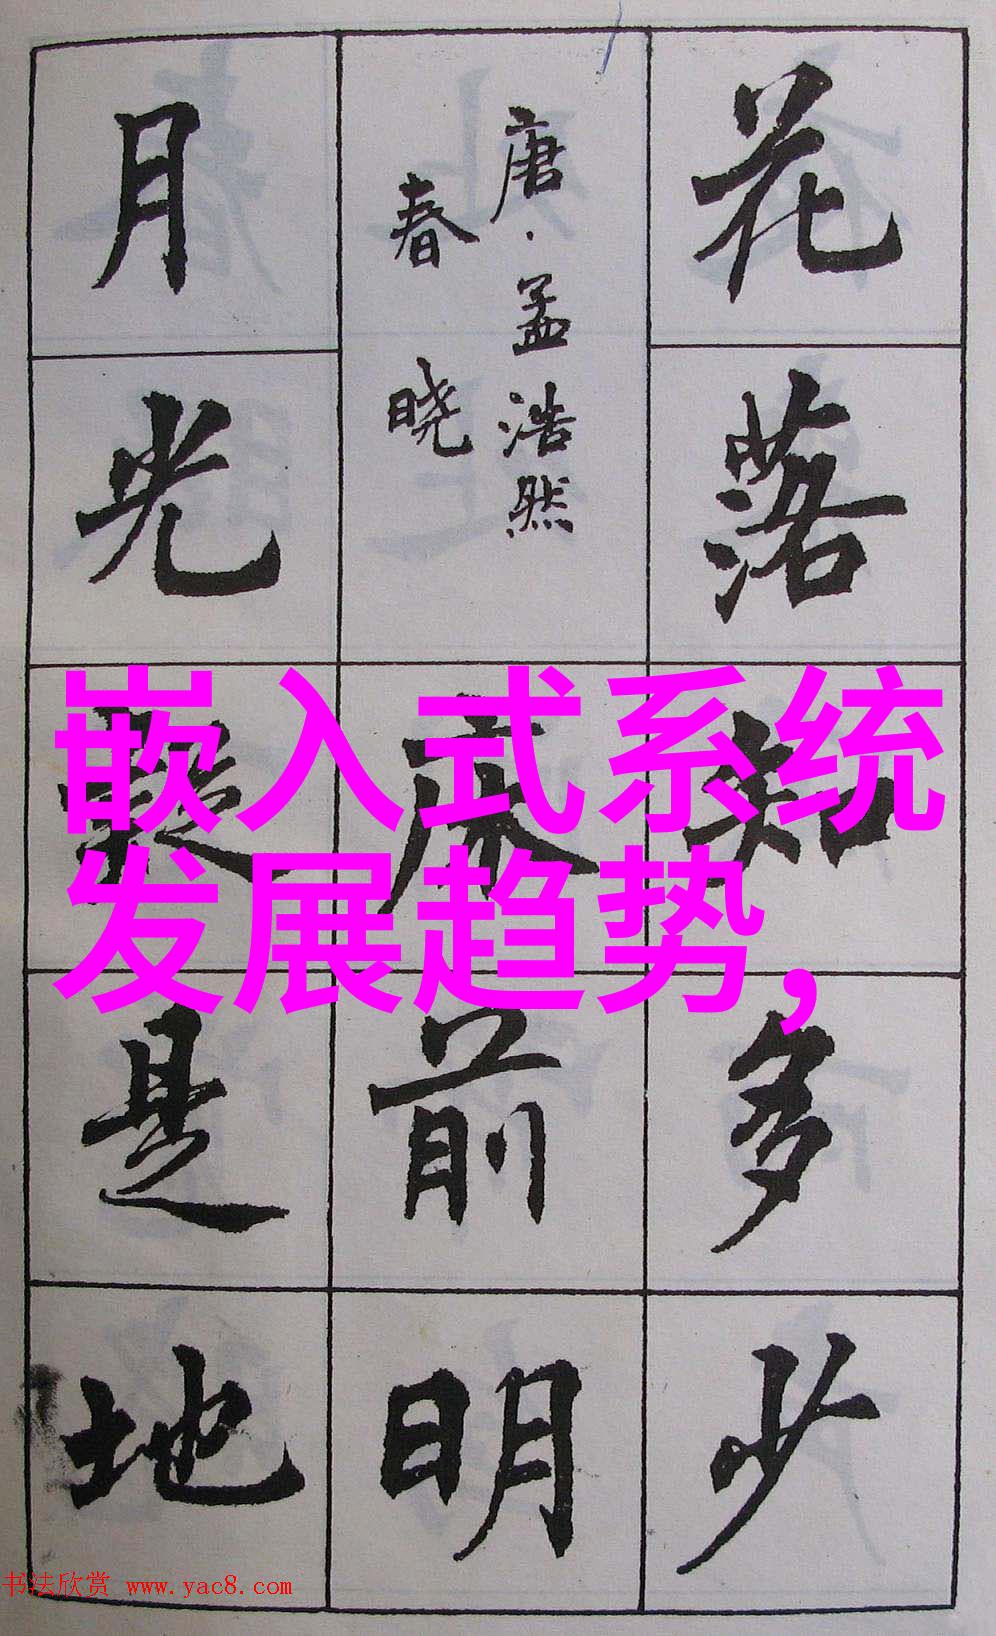 花落知多少
唐·孟浩然
春晓
床前明
月光疑是地
嵌入式系统
发展趋势,
书法欣赏 www.yac8.com